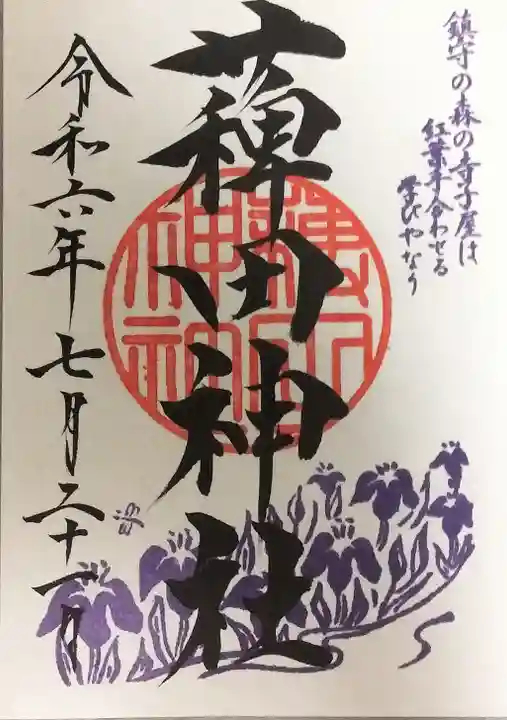 鎮守の森の寺子屋は
紅葉手合わせる
学びやなり
薭田神社
令和六年七月二十一日